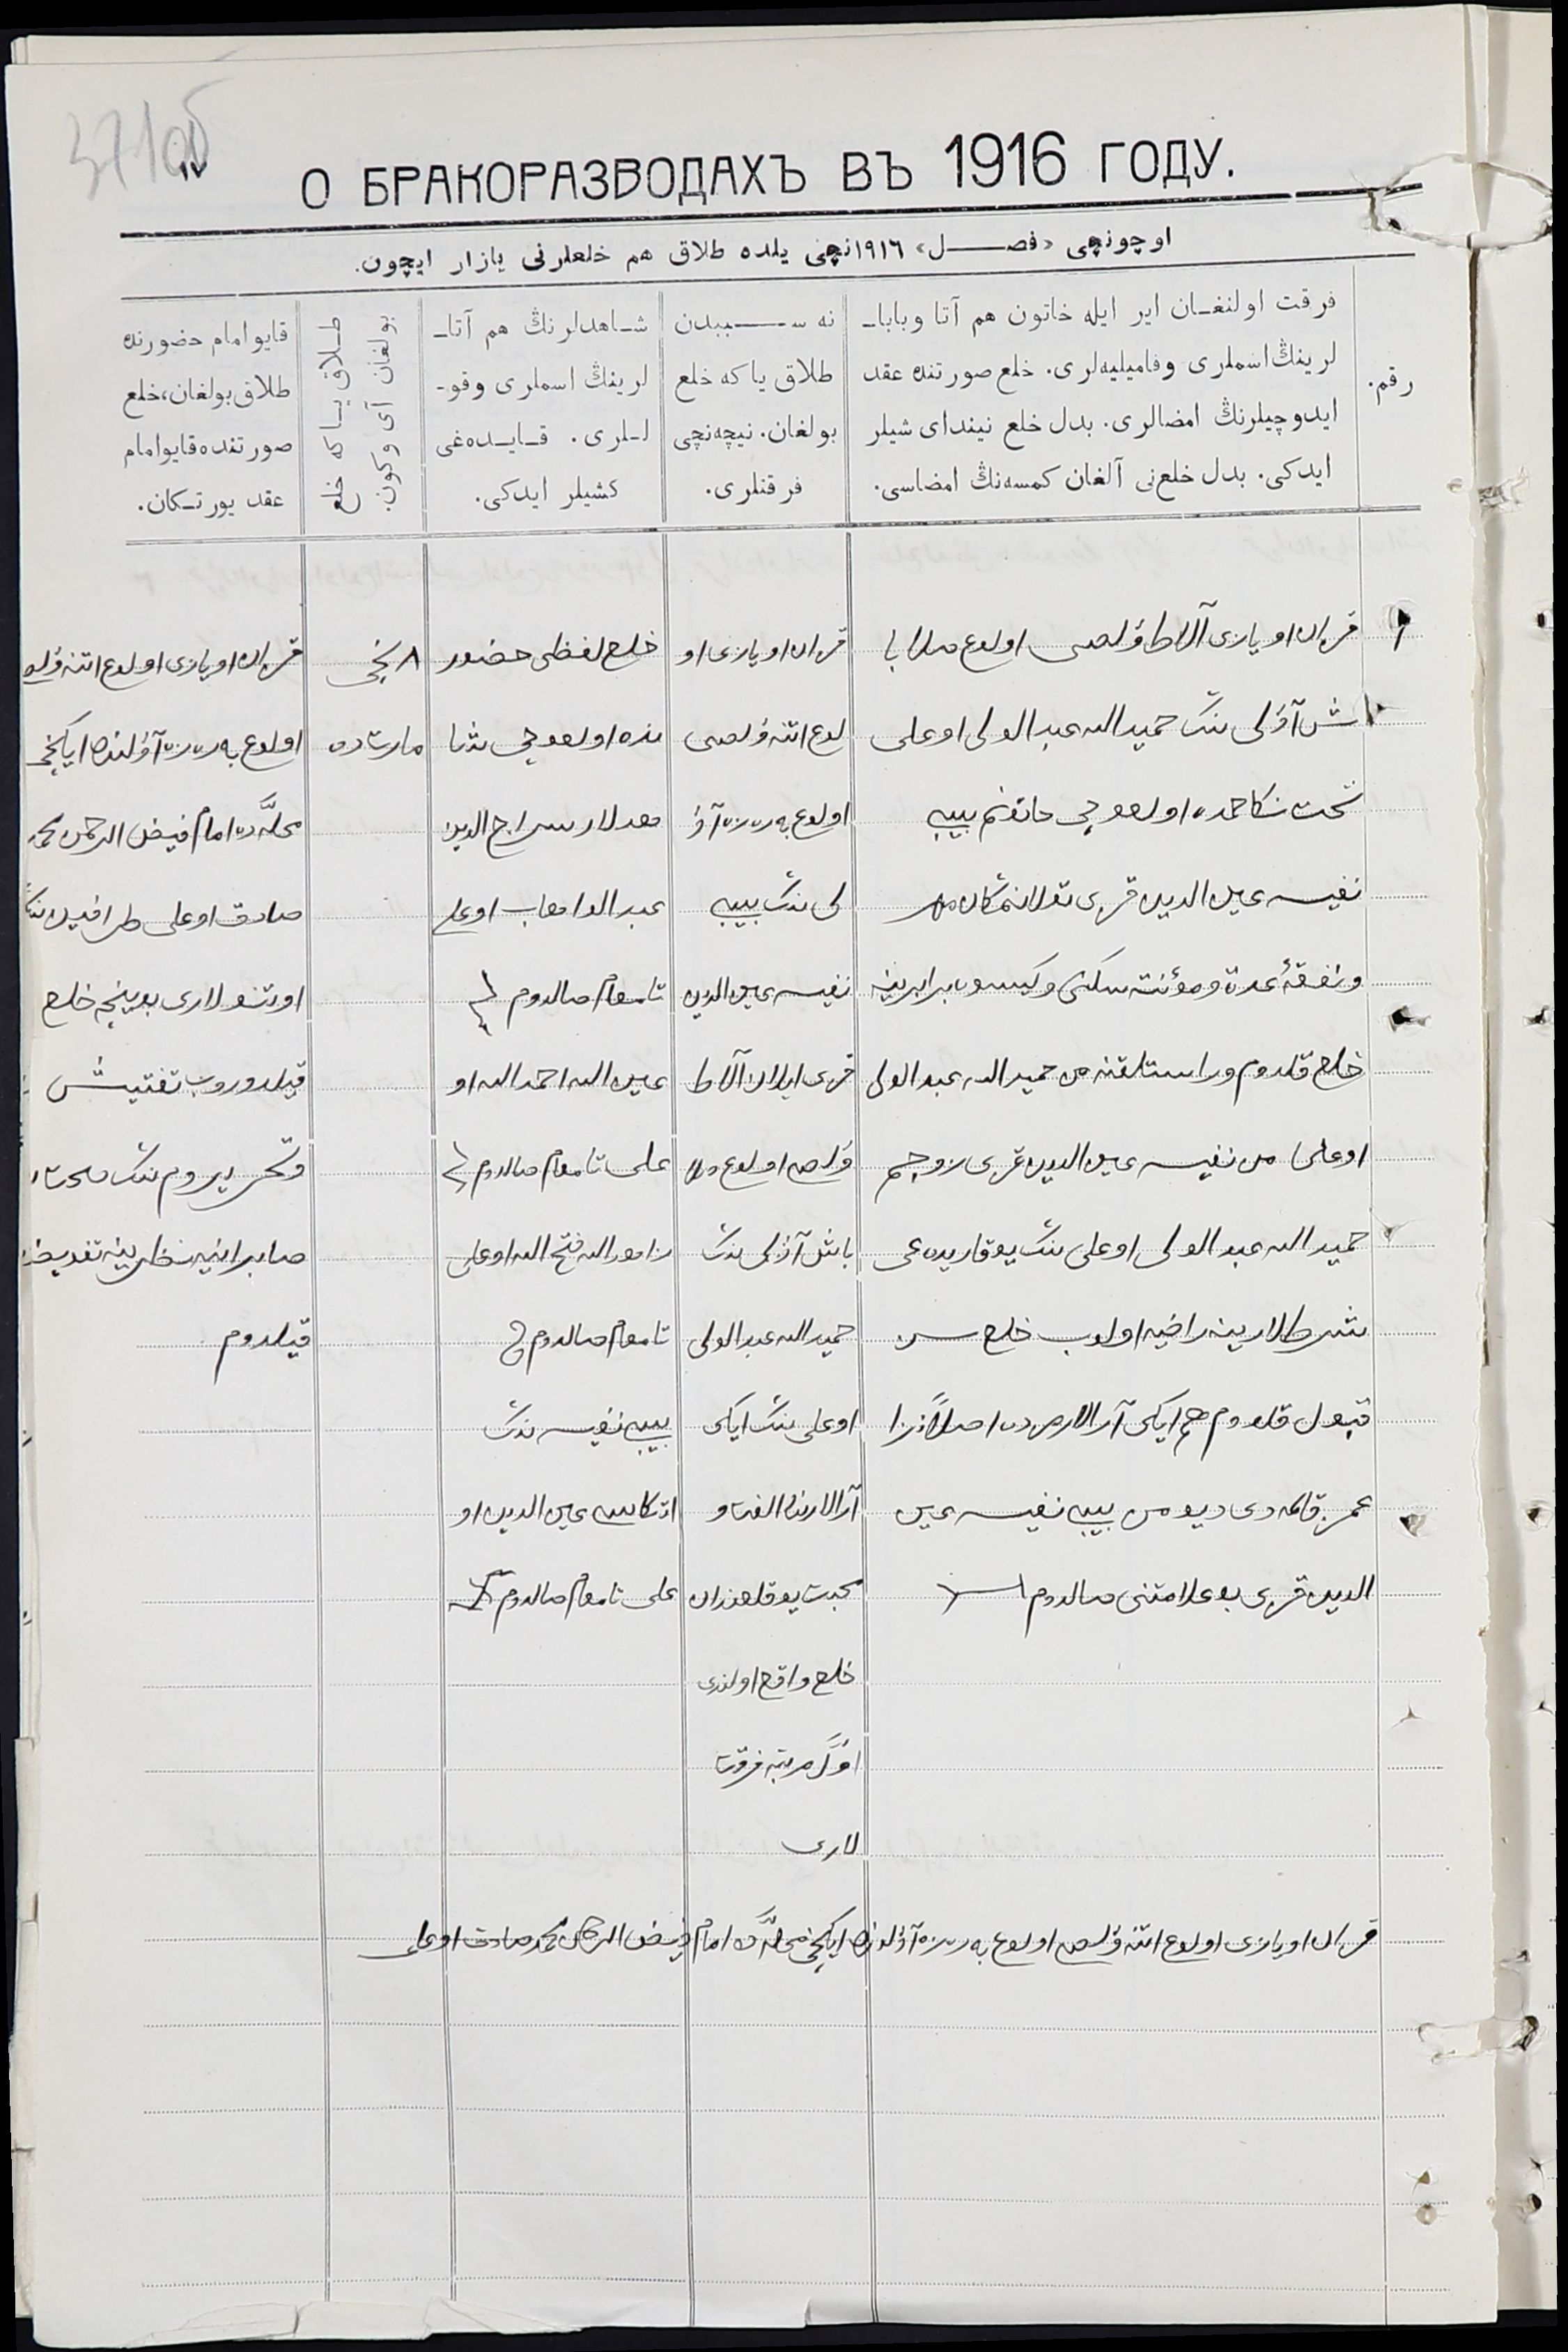 О БРАКОРАЗВОДАХЪ ВЪ 1916 ГОДУ.
اوچونچی «فصـــل» ۱۹۱٦نچی یلده طلاق هم خلعلرنی یازار ایچون.
رقم.
فرقت اولنغـان ایر ایله خاتون هم آتا وبابا۔
لرینڭ اسملری وفامیلیه‌لری. خلع صورتنده عقد
ایدوچیلرنڭ امضالری. بدل خلع نیندای شیلر
ایدکی. بدل خلع‌نی آلغان کمسه‌نڭ امضاسی.
نه ســـببدن
طلاق یا که خلع
بولغان. نیچه‌نچی
فرقتلری.
شـاهدلرنڭ هم آتا۔
لرینڭ اسملری وقو۔
لـلری. قـایـده‌غی
کشیلر ایدکی.
طـلاق یـا که خلع
بولغان آی و کون.
قایو امام حضورنده
طلاق بولغان، خلع
صورتنده قایو امام
عقد یورتـکان.
۱
قزان اویازی آلاط ۋلصی اولوغ ملا با
ش آۋلی ننک حمید الله عبد الولی اوغلی
تحت نکاحمده اولغوچی خاتونم بیبی
نفیسه عین الدین قزی تولانمکان مهر
ونفقهٔ عدة ومؤنت سکنی وکیسوب برابرینه
خلع قلدوم وراستلقنه من حمید الله عبد الولی
اوغلی من نفیسه عین الدین قزی زوجم
حمید الله عبد الولی اوغلی ننک یوقاریده‌غی
شرطلارینه راضیه اولوب خلع سن
قبول قلدوم هم ایکی آرالارمزده اصلاً نزا
عمز قالمه‌دی دیو من بیبی نفیسه عین
الدین قزی بو علامتنی صالدوم
قزان اویازی او
لوغ اتنه ۋلصی
اولوغ به‌ره‌زه آۋ
لی ننک بیبی
نفیسه عین الدین
قزی ایلان آلاط
ۋلصی اولوغ ملا
باش آۋلی ننک
حمید الله عبد الولی
اوغلی ننک ایکی
آرالارنده الفت و
محبت یوقلغندان
خلع واقع اولندی
اوّل مرتبه فرقت
لاری
خلع لفظی حضور
نده اولغوچی شا
هدلار سراج الدین
عبد الوهاب اوغلی
تامغام صالدوم
عین الله احمد الله او
غلی تامغام صالدوم
فتح الله اوغلی
تامغام صالدوم
بیبی نفیسه ننک
اتکاسی عین الدین او
غلی تامغام صالدوم
۸ نچی
مارتده
قزان اویازی اولوغ اتنه ۋلص
اولوغ به‌ره‌زه آۋلنده ایکنچی
محلّه‌ده امام فیض الرحمن محمد
صادق اوغلی طرافیدن
اوتنولاری بوینچه خلع
قیلدوروب تفتیش
وتحریروم ننک صحت
صابرانیه نظرینه تفویض
قیلدوم
قزان اویازی اولوغ اتنه ۋلصی اولوغ به‌ره‌زه آۋلنده ایکنچی محلّه‌ده امام فیض الرحمن محمد صادق اوغلی